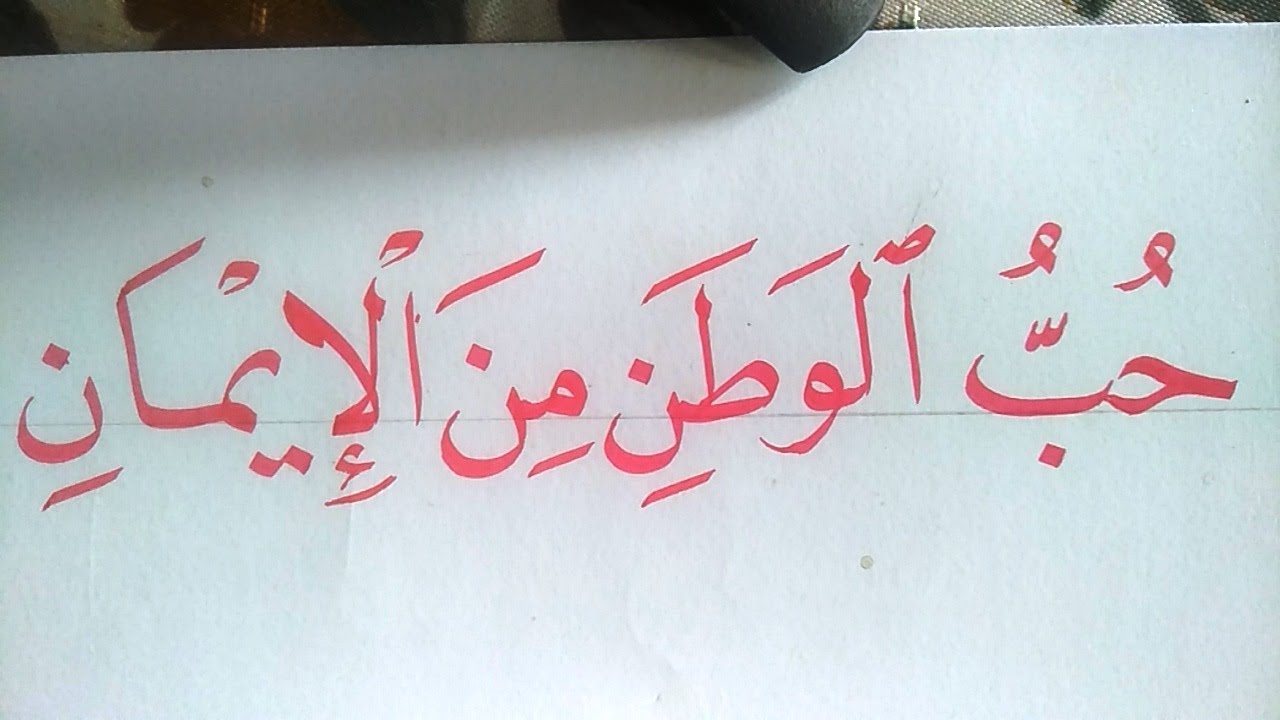 حُبُّ ٱلْوَطَنِ مِنَ الْإِيْمَانِ